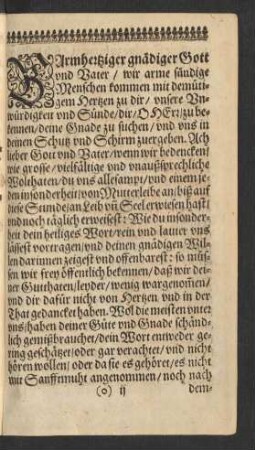 BArmhertziger gnädiger Gott
vnd Vater / wir arme sündige
Menschen kommen mit demüti-
gem Hertzen zu dir / vnsere Vn-
würdigkeit vnd Sünde / dir / O HErr / zu be-
kennen / deine Gnade zu suchen / vnd vns in
deinen Schutz vnd Schirm zuergeben. Ach
lieber Gott vnd Vater / wenn wir bedencken /
wie grosse / vielfältige vnd vnaußsprechliche
Wolthaten / du vns allesampt / vnd einem je-
den insonderheit / von Mutterleibe an / biß auff
diese Stunde / an Leib vñ Seel erwiesen hast /
vnd noch täglich erweisest: Wie du insonder-
heit dein heiliges Wort / rein vnd lauter vns
lässest vortragen / vnd deinen gnädigen Wil-
len darinnen zeigest vnd offenbarest: so müs-
sen wir frey öffentlich bekennen / daß wir dei-
ner Gutthaten / leyder / wenig wargenom̃en /
vnd dir dafür nicht von Hertzen vnd in der
That gedancket haben. Wol die meisten vnter
vns / haben deiner Güte vnd Gnade schänd-
lich gemißbrauchet / dein Wort entweder ge-
ring geschätzet / oder gar verachtet / vnd nicht
hören wollen / oder da sie es gehöret / es nicht
mit Sanfftmuht angenommen / noch nach
(o) ij dem-